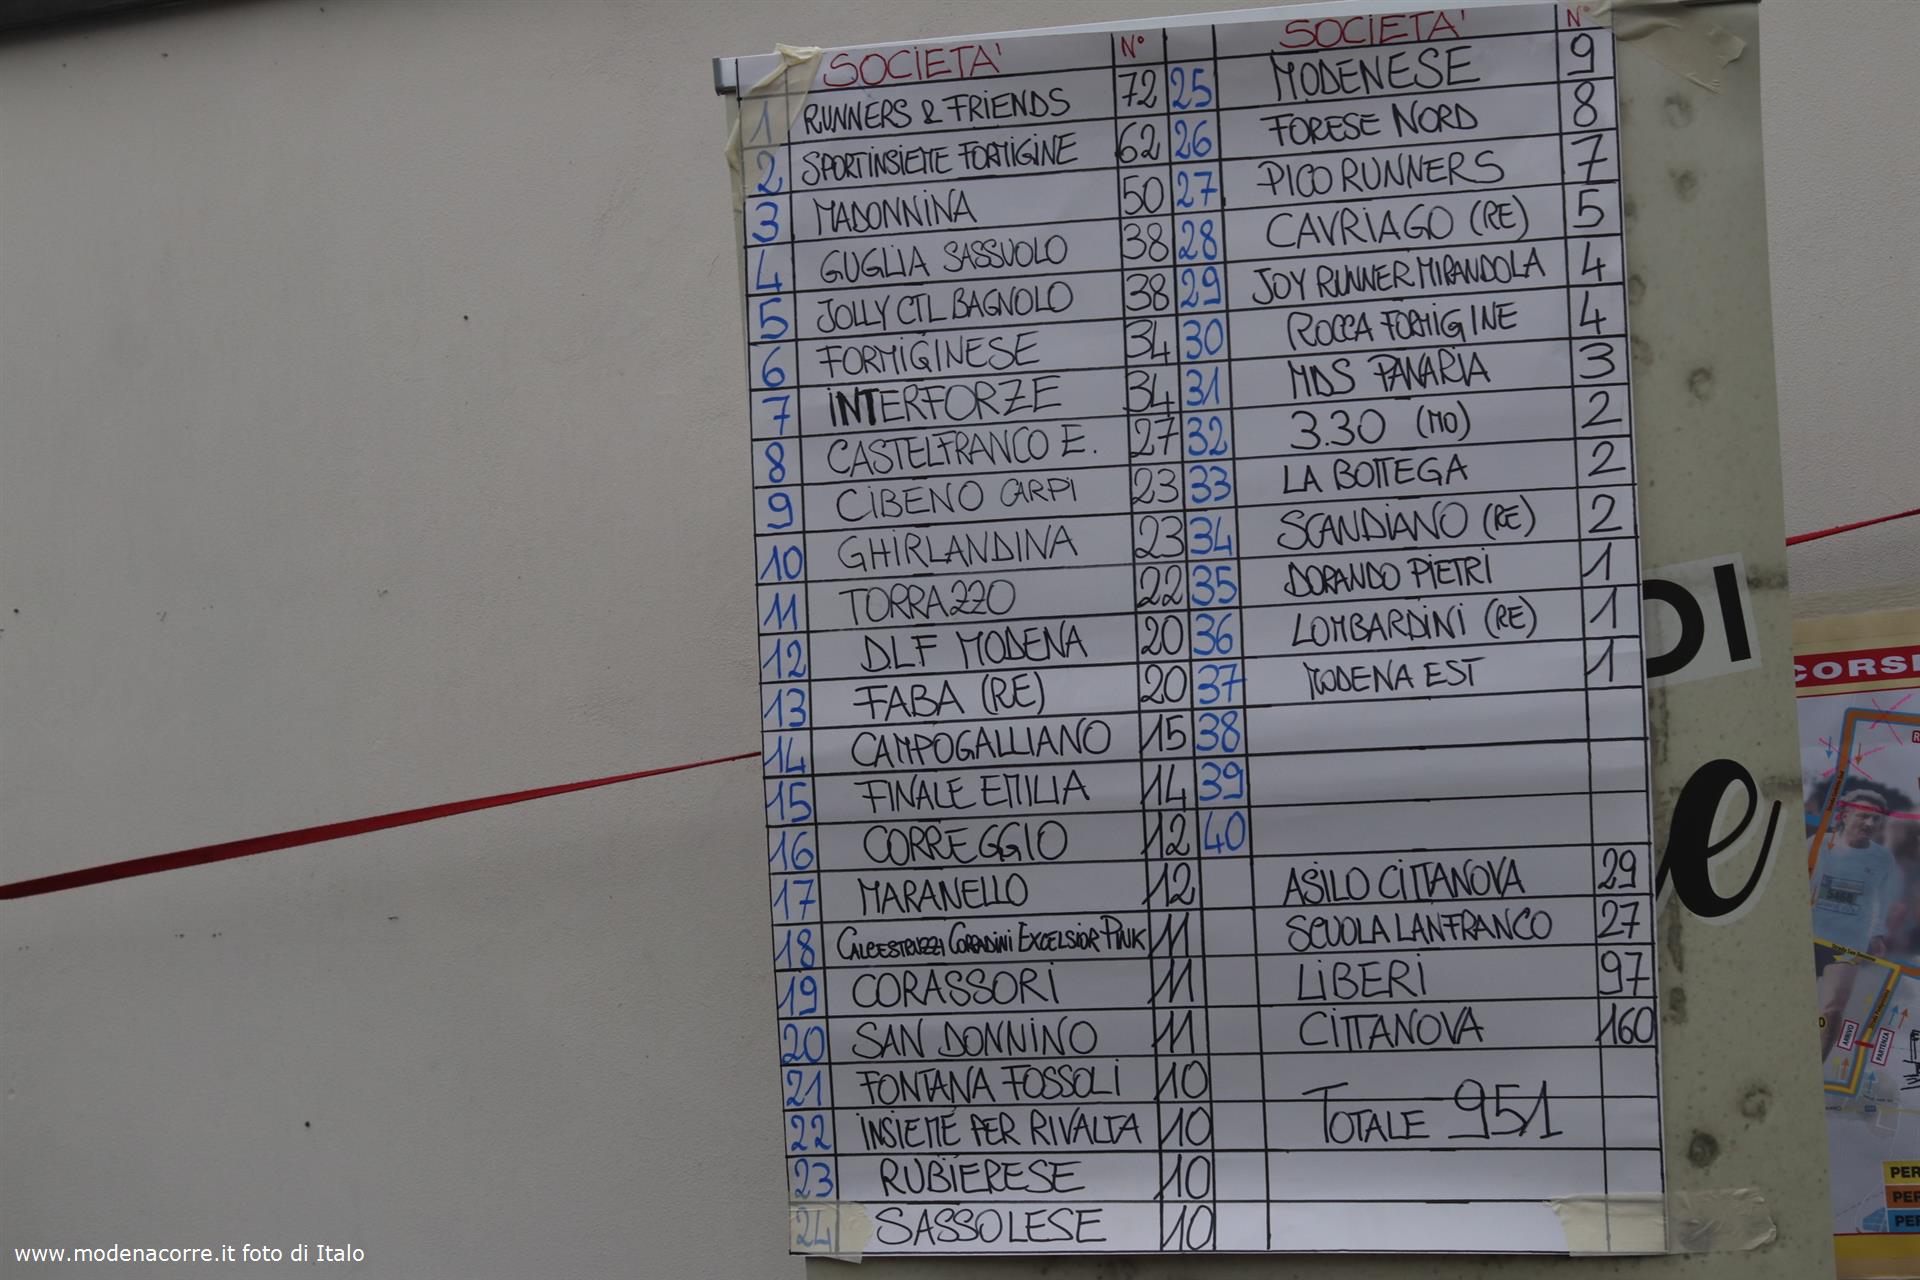 SOCIETA' N°
1 RUNNERS & FRIENDS 72
2 SPORTINSIEME FORMIGINE 62
3 MADONNINA 50
4 GUGLIA SASSUOLO 38
5 JOLLY CTL BAGNOLO 38
6 FORMIGINESE 34
7 INTERFORZE 34
8 CASTELFRANCO E. 27
9 CIBENO CARPI 23
10 GHIRLANDINA 23
11 TORRAZZO 22
12 D.L.F MODENA 20
13 FABA (RE) 20
14 CAMPOGALLIANO 15
15 FINALE EMILIA 14
16 CORREGGIO 12
17 MARANELLO 12
18 CALCESTRUZZI CORRADINI EXCELSIOR PINK 11
19 CORASSORI 11
20 SAN DONNINO 11
21 FONTANA FOSSOLI 10
22 INSIEME PER RIVALTA 10
23 RUBIERESE 10
24 SASSOLESE 10
SOCIETA' N°
25 MODENESE 9
26 FORESE NORD 8
27 PICO RUNNERS 7
28 CAVRIAGO (RE) 5
29 JOY RUNNER MIRANDOLA 4
30 ROCCA FORMIGINE 4
31 MDS PANARIA 3
32 3.30 (MO) 2
33 LA BOTTEGA 2
34 SCANDIANO (RE) 2
35 DORANDO PIETRI 1
36 LOMBARDINI (RE) 1
37 MODENA EST 1
38
39
40
ASILO CITTANOVA 29
SCUOLA LANFRANCO 27
LIBERI 97
CITTANOVA 160
TOTALE 951
DI
e
CORSE
ARRIVO
PARTENZA
PER
PER
PE
www.modenacorre.it foto di Italo